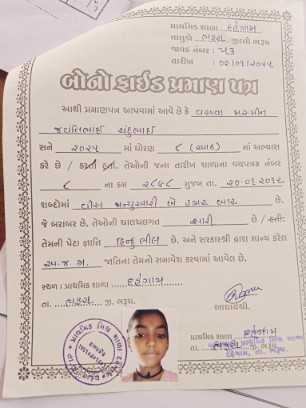 પ્રાથમિક શાળા દહેગામ
તાલુકો ભરૂચ જીલ્લો ભરૂચ
જાવક નંબર : ૫૩
તારીખ : ૦૬/૦૧/૨૦૨૫
બોનોફાઈડ પ્રમાણ પત્ર
આથી પ્રમાણપત્ર આપવામાં આવે છે કે વસાવા જાસ્મીન
જયંતિભાઈ ચંદુભાઈ
સને ૨૦૨૫ માં ધોરણ ૮ (આઠ) માં અભ્યાસ
કરે છે / કરતી હતી. તેઓની જન્મ તારીખ શાળાના વયપત્રક નંબર
૮ ના ક્રમ ૨૮૪૬ મુજબ તા. ૨૦-૦૧-૨૦૧૨
શબ્દોમાં વીસ જાન્યુઆરી બે હજાર બાર છે.
જે બરાબર છે. તેઓની ચાલચલગત સારી છે / હતી.
તેમની પેટા જ્ઞાતિ હિન્દુ ભીલ છે. અને સરકારશ્રી દ્વારા માન્ય કરેલ
અ.જ.જા. જાતિના તેમનો સમાવેશ કરવામાં આવેલ છે.
સ્થળ : પ્રાથમિક શાળા : દહેગામ
તા. ભરૂચ જી. ભરૂચ.
આચાર્યશ્રી.
પ્રાથમિક શાળા દહેગામ
તા. ભરૂચ જી. ભરૂચ
દહેગામ, તા. ભરૂચ.